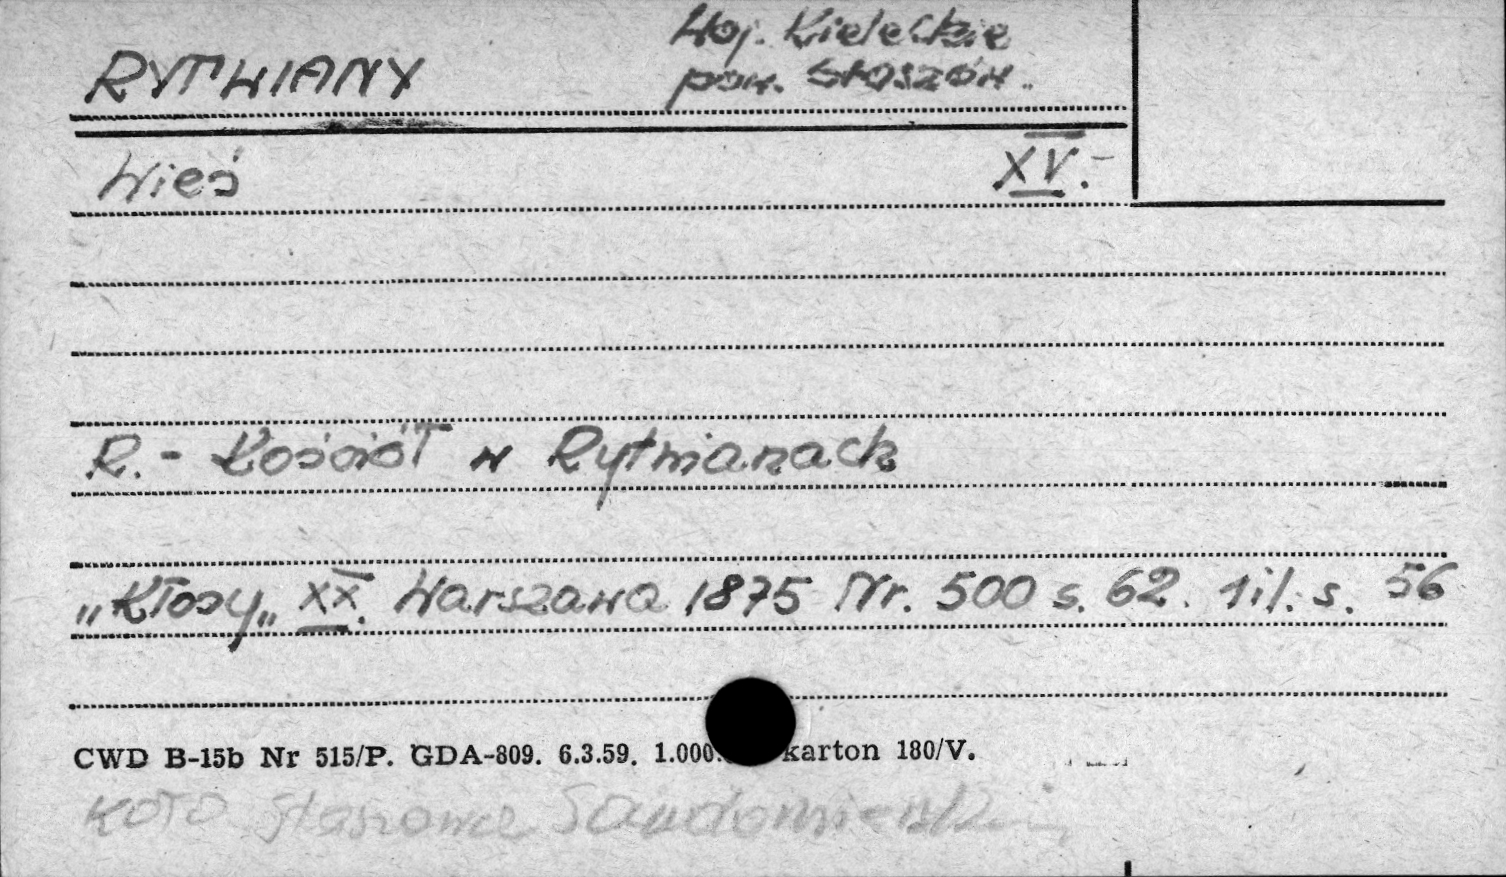 RYTWIANY
Woj. Kieleckie
pow. Staszów.
Wieś
XV.-
R. - Kościół w Rytwianach
„Kłosy„ XX. Warszawa 1875 Nr. 500 s. 62. 1 il. s. 56
CWD B-15b Nr 515/P. GDA-809. 6.3.59. 1.000. karton 180/V.
koło Staszowa Sandomierskie